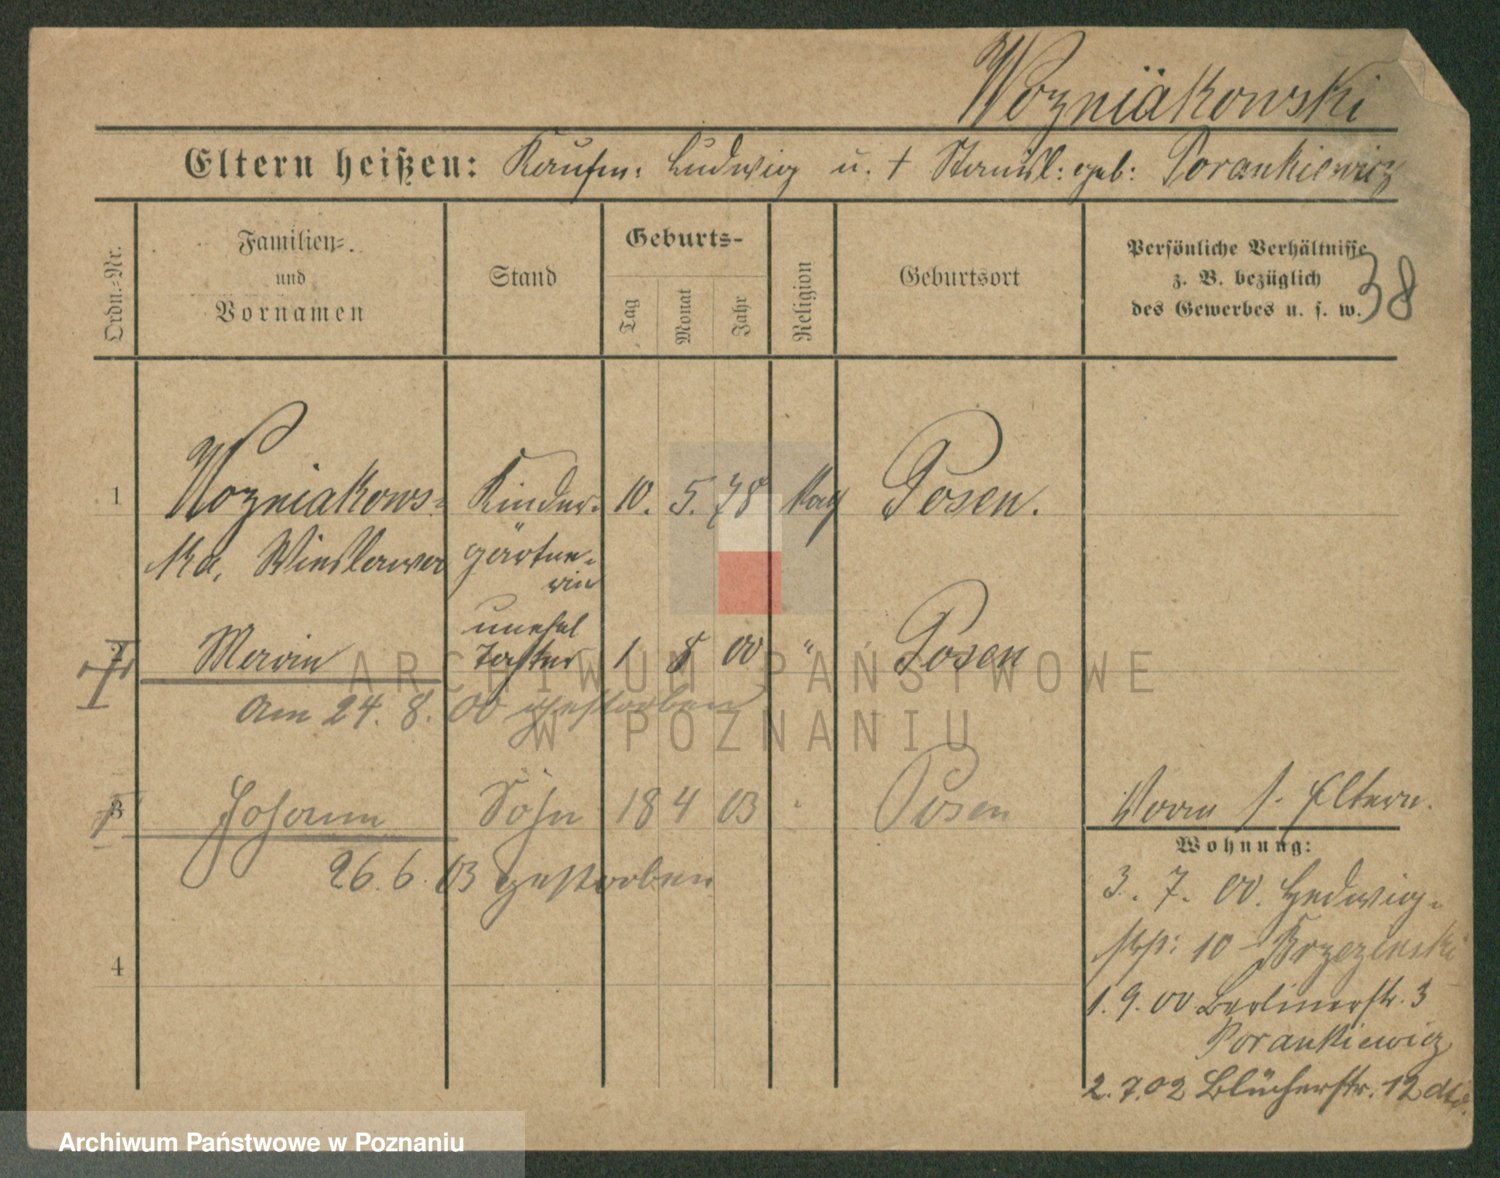 Wozniakowski
Eltern heißen: Kaufm: Ludwig u. † Stanisl: geb: Porankiewicz
Ordn.-Nr.
Familien-
und
Vornamen
Stand
Geburts-
Tag
Monat
Jahr
Religion
Geburtsort
Persönliche Verhältnisse
z. B. bezüglich
des Gewerbes u. s. w.
38
1 Wozniakows- Kinder- 10. 5. 78 kath Posen.
ka, Wieslawa gärtne-
rin
unehel
2 Maria Tochter 1 8 00 " Posen
am 24. 8. 00 gestorben
3 Johann Sohn 18 4 03 " Posen
26. 6. 03 gestorben
4
Vorm s. Eltern.
Wohnung:
3. 7. 00. Hedwig-
str: 10 Brzezinski
1. 9. 00 Berlinerstr. 3
Porankiewicz
2. 7. 02 Blücherstr. 12
ARCHIWUM PAŃSTWOWE
W POZNANIU
Archiwum Państwowe w Poznaniu